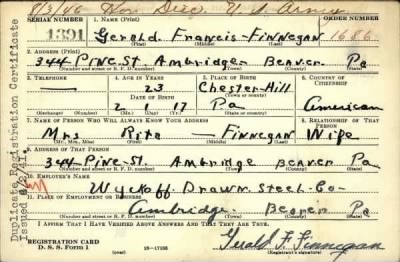 8/3/46 Hon Disc. U S Army
SERIAL NUMBER 1. NAME (Print) ORDER NUMBER
1391 Gerald Francis - Finnegan 1686
(First) (Middle) (Last)
2. ADDRESS (Print)
344 Pine St. Ambridge Beaver Pa
(Number and street or R. F. D. number) (Town) (County) (State)
3. TELEPHONE 4. AGE IN YEARS 5. PLACE OF BIRTH 6. COUNTRY OF CITIZENSHIP
23 Chester-Hill
DATE OF BIRTH
2 1 17 Pa American
(Mo.) (Day) (Yr.)
7. NAME OF PERSON WHO WILL ALWAYS KNOW YOUR ADDRESS 8. RELATIONSHIP OF THAT PERSON
Mrs Rita - Finnegan Wife
(Mr., Mrs., Miss) (First) (Middle) (Last)
9. ADDRESS OF THAT PERSON
344 Pine-St. Ambridge Beaver Pa
(Number and street or R. F. D. number) (Town) (County) (State)
10. EMPLOYER'S NAME
Wyckoff Drawn Steel Co-
11. PLACE OF EMPLOYMENT OR BUSINESS
Ambridge Beaver Pa
(Number and street or R. F. D. number) (Town) (County) (State)
I AFFIRM THAT I HAVE VERIFIED ABOVE ANSWERS AND THAT THEY ARE TRUE.
REGISTRATION CARD
D. S. S. Form 1 16-17105 Gerald F. Finnegan
(Registrant's signature)
Duplicate Registration Certificate